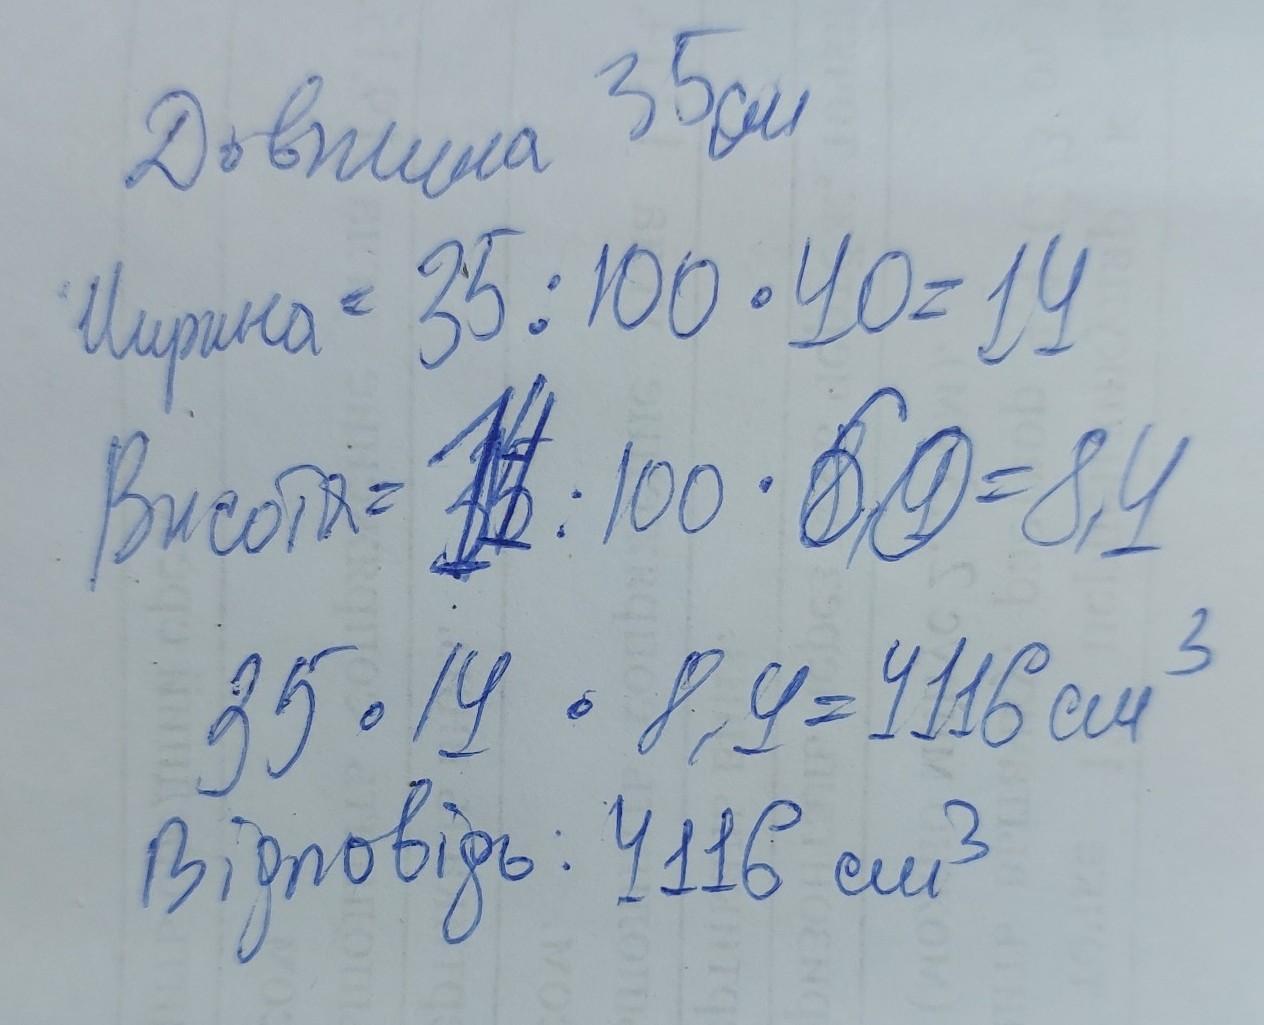 Довжина 35см
Ширина = 35 : 100 · 40 = 14
Висота = 14 : 100 · 60 = 8,4
35 · 14 · 8,4 = 4116 см³
Відповідь: 4116 см³